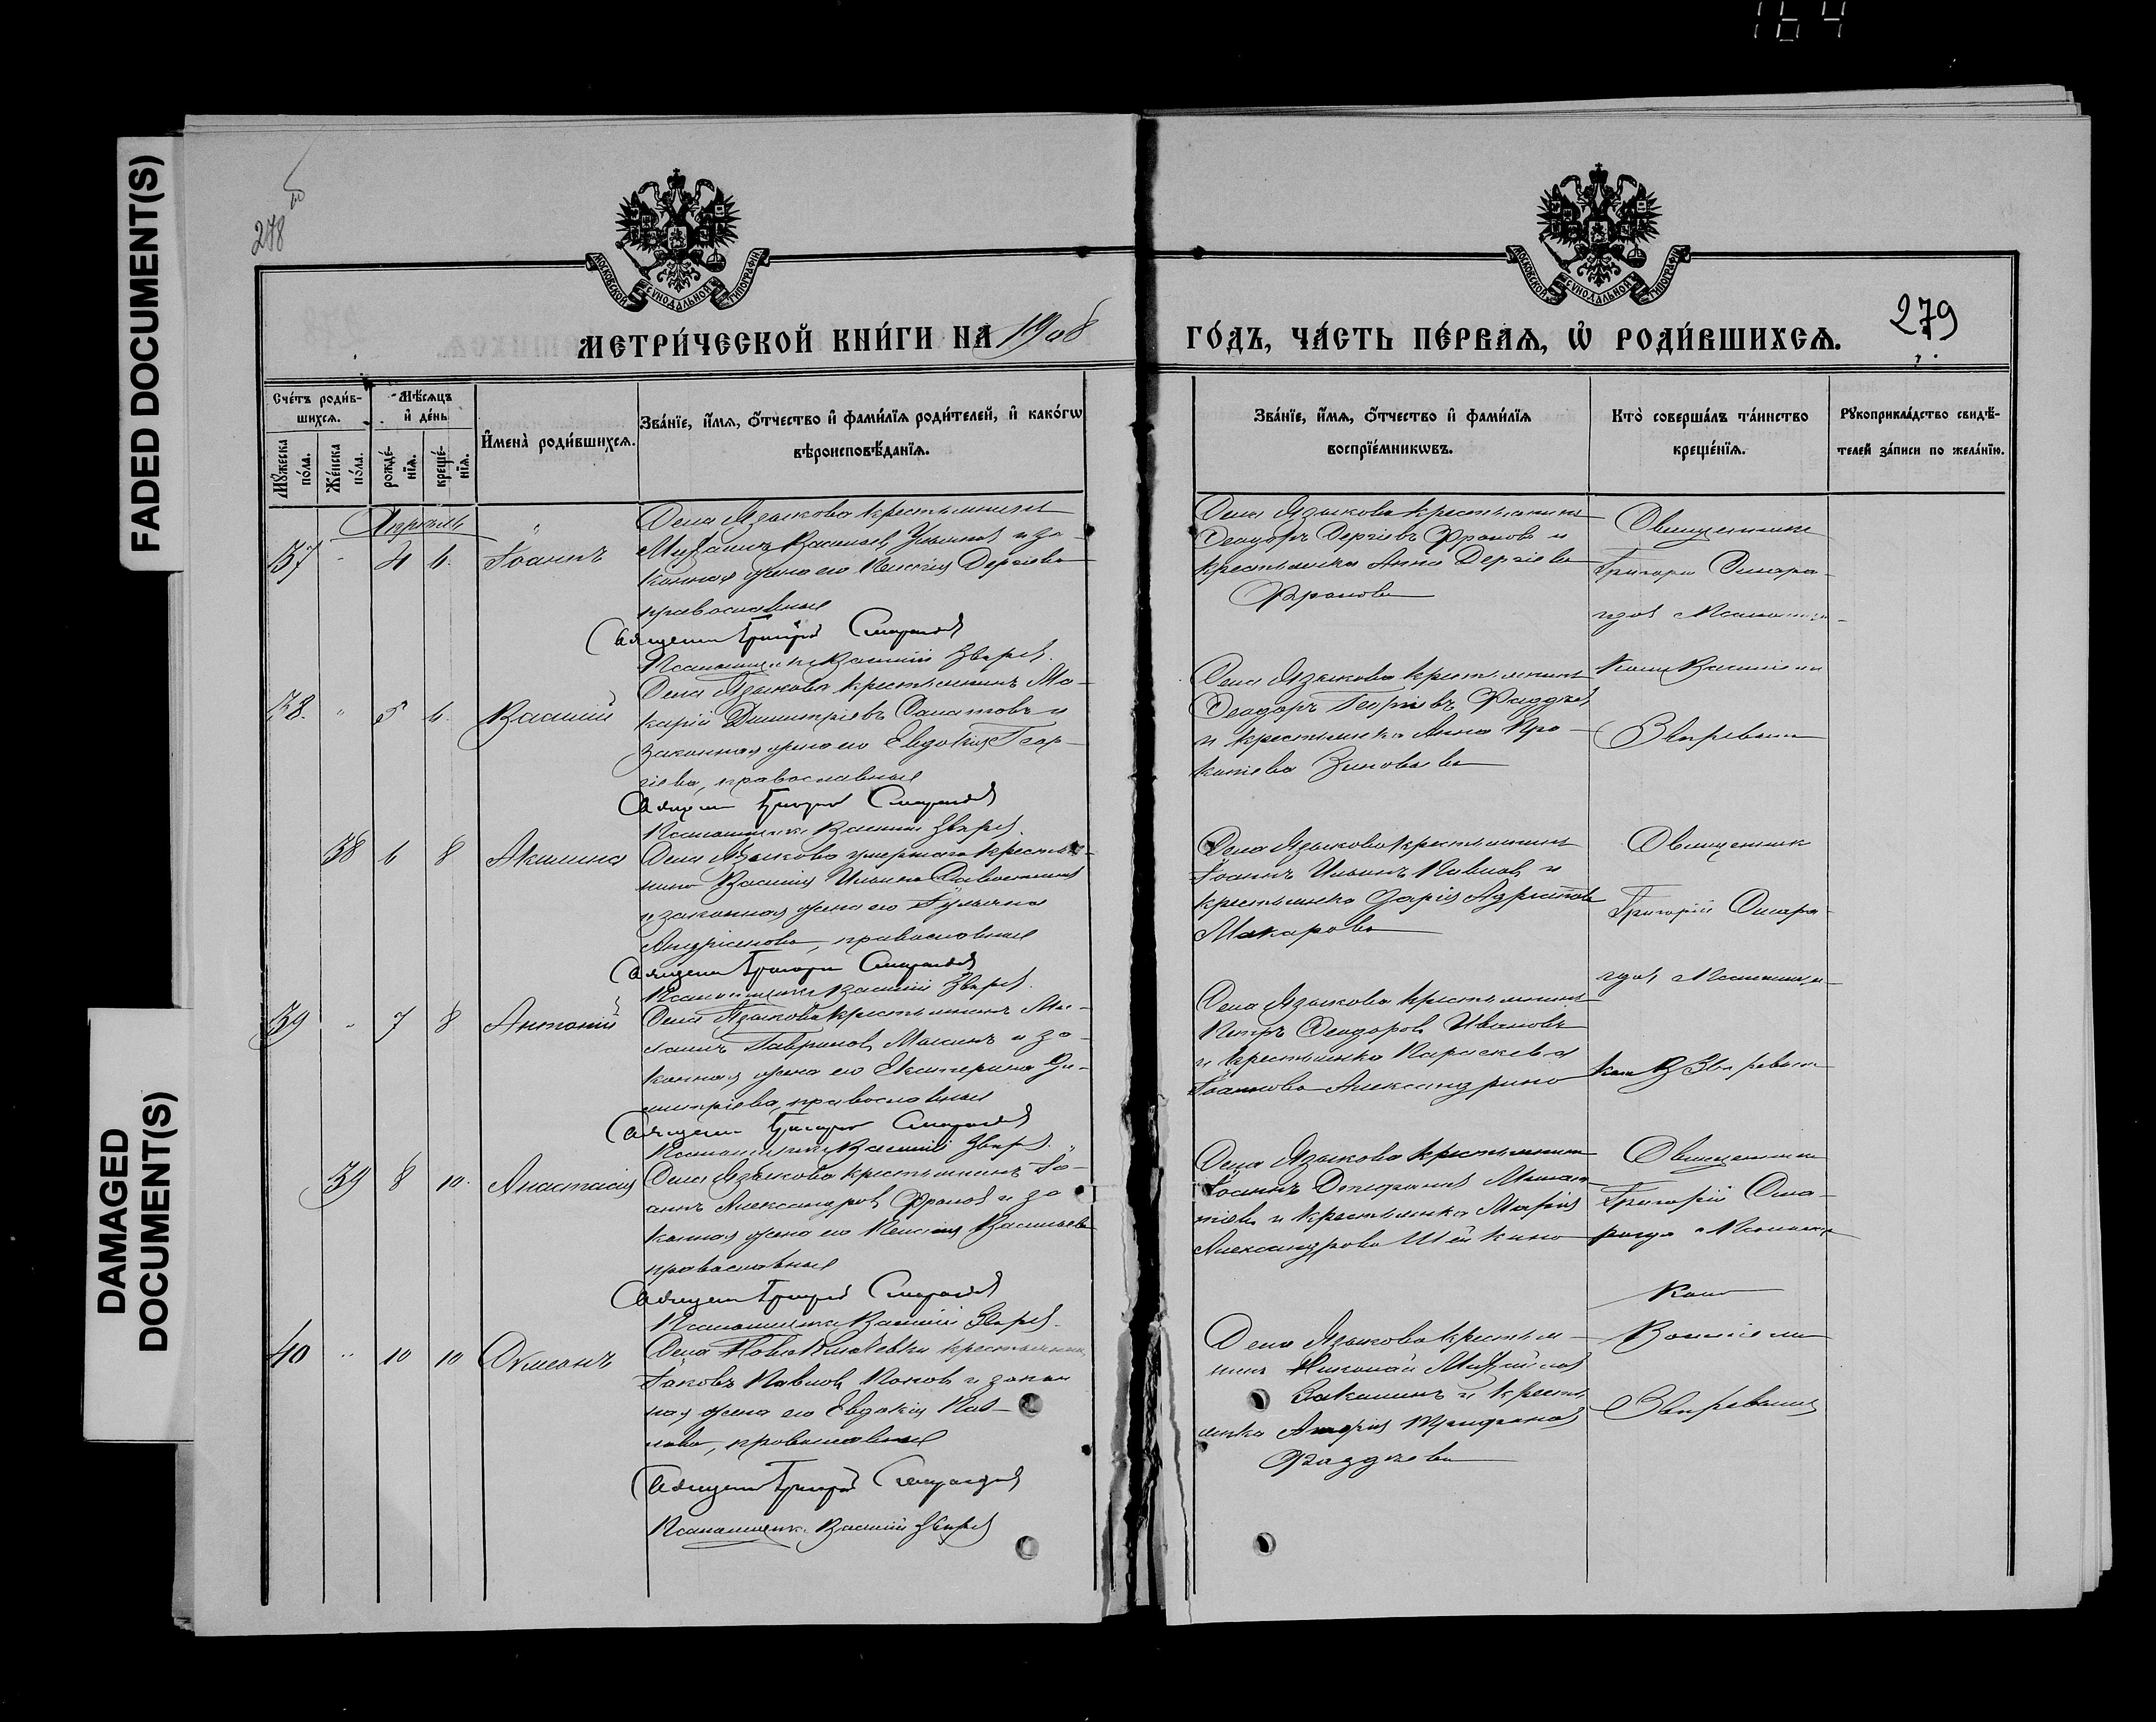 164
FADED DOCUMENT(S)
DAMAGED
DOCUMENT(S)
278 об
279
МОСКОВСКОЙ СѴНОДАЛЬНОЙ ТИПОГРАФІИ
МОСКОВСКОЙ СѴНОДАЛЬНОЙ ТИПОГРАФІИ
МЕТРИ́ЧЕСКОЙ КНИ́ГИ НА 1908
ГО́ДЪ, ЧА́СТЬ ПЕ́РВАѦ, Ѡ҆ РОДИ́ВШИХСѦ.
Сче́тъ роди́в-
шихсѧ.
Мꙋжеска по́ла.
Же́нска по́ла.
Мѣ́сѧцъ
и҆ де́нь
рожде́-
нїѧ.
креще́-
нїѧ.
И҆мена̀ роди́вшихсѧ.
Зва́нїе, и҆́мѧ, ѻ҆́тчество и҆ фами́лїѧ роди́телей, и҆ како́гѡ
вѣроисповѣ́данїѧ.
Зва́нїе, и҆́мѧ, ѻ҆́тчество и҆ фами́лїѧ
воспрїе́мникѡвъ.
Кто̀ соверша́лъ та́инство
креще́нїѧ.
Рꙋкоприкла́дство свидѣ́-
телей за́писи по жела́нїю.
Апрѣль
37 " 4 6 Іоаннъ
Села Языкова крестьянинъ
Михаилъ Васильев и за-
конная жена его Сергіева
православные
Священник Григорій Смарагдов
Псаломщикъ Василій Звѣрев
Села Языкова крестьянинъ
Ѳеодоръ Сергіевъ Фролов и
крестьянка Анна Сергіева
Фролова
Священникъ
Григорій Смара-
гдов Псаломщи-
комъ Василіем
Звѣревым
38 " 5 6 Василій
Села Языкова крестьянинъ Ма-
карій Димитріевъ и
законная жена его Евдокія Геор-
гіева, православные
Священник Григорій Смарагдов
Псаломщикъ Василій Звѣрев
Села Языкова крестьянинъ
Ѳеодоръ Георгіевъ Фаддѣев
и крестьянка Анна Про-
копіева Зиновьева
38 6 8 Акилина
Села Языкова умершаго крестья-
нина Василія Ильина
и законная жена его
Андріанова, православные
Священник Григорій Смарагдов
Псаломщикъ Василій Звѣрев
Села Языкова крестьянинъ
Іоаннъ Ильинъ Павлов и
крестьянка Дарія
Макарова
Священник
Григорій Смара-
гдов Псаломщи-
ком В Звѣревым
39 " 7 8 Антоній
Села Языкова крестьянинъ Ми-
хаилъ Гаврилов и за-
конная жена его Екатерина Ди-
митріева, православные
Священник Григорій Смарагдов
Псаломщикъ Василій Звѣрев
Села Языкова крестьянинъ
Петръ Ѳеодоров Ивановъ
и крестьянка Параскева
Іоаннова Александрина
39 8 10 Анастасія
Села Языкова крестьянинъ Іо-
аннъ Александров Фролов и за
конная жена его Васильева
православные
Священник Григорій Смарагдов
Псаломщикъ Василій Звѣрев
Села Языкова крестьянинъ
Іоаннъ
и крестьянка Марія
Александрова
Священникъ
Григорій Сма-
рагдов Псаломщи
комъ
Василіем
Звѣревымъ
40 " 10 10 Симеонъ
Села крестьянинъ
Іаковъ Павлов Попов и закон
ная жена его Евдокія Пав-
лова, православные
Священник Григорій Смарагдов
Псаломщикъ Василій Звѣрев
Села Языкова крестья-
нинъ Николай Михайлов
и кресть
янка
Фаддѣева